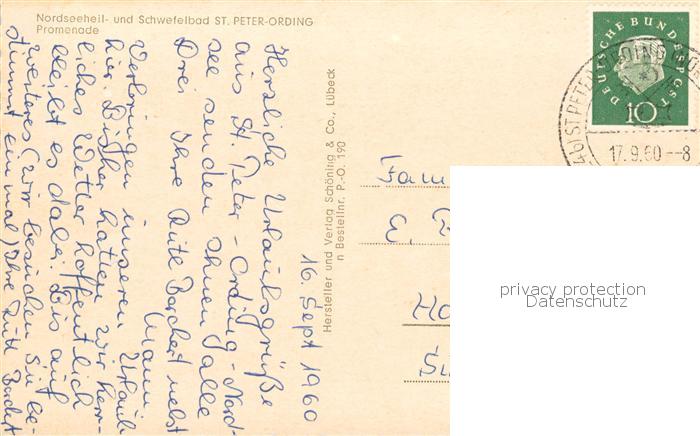 Nordseeheil- und Schwefelbad ST. PETER-ORDING
Promenade
16. Sept 1960
Herzliche Urlaubsgrüße
aus St. Peter-Ording-Nord-
see senden Ihnen alle
Drei Ihre Ruth Borchert nebst
Mann
Verbringen unseren Urlaub
hier. Bisher hatten wir herr-
liches Wetter hoffentlich
bleibt es dabei. Bis auf
weiteres (wir besuchen Sie be-
stimmt einmal) Ihre Ruth Borchert
Hersteller und Verlag Schöning & Co., Lübeck
n Bestellnr. P.-O. 190
DEUTSCHE BUNDESPOST
10
ST PETER-ORDING
17.9.60--8
Fam
E.
Ha
privacy protection
Datenschutz